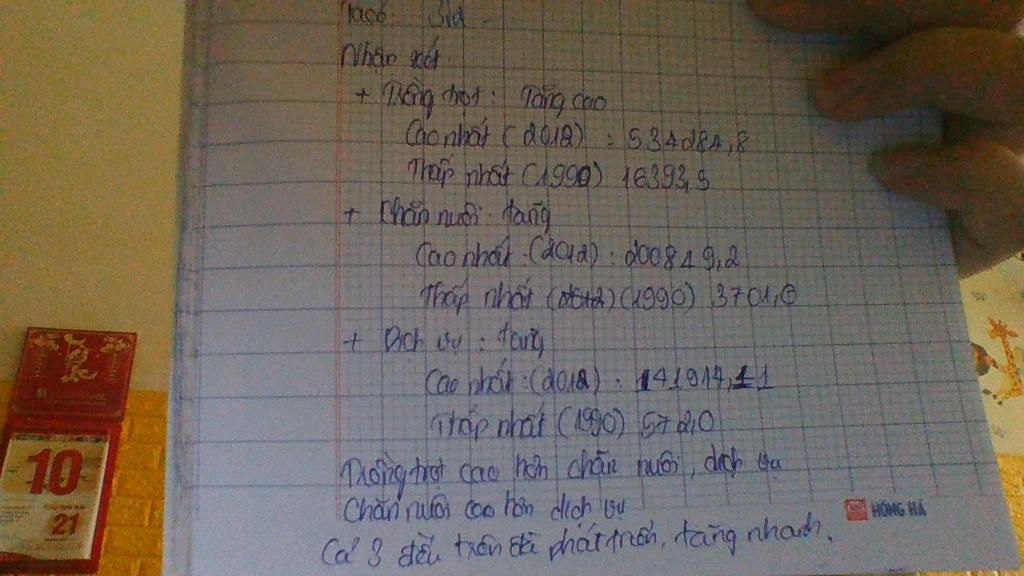 Nhận xét
+ Trồng trọt: Tăng cao
Cao nhất (2012) : 534284,8
Thấp nhất (1990) 16393,5
+ Chăn nuôi: tăng
Cao nhất (2012) : 200849,2
Thấp nhất (1990) 3701,0
+ Dịch vụ : tăng
Cao nhất: (2012) :
Thấp nhất (1990) 572,0
Trồng trọt cao hơn chăn nuôi, dịch vụ
Chăn nuôi cao hơn dịch vụ
Cả 3 đều trên đà phát triển, tăng nhanh.
HỒNG HÀ
10
21